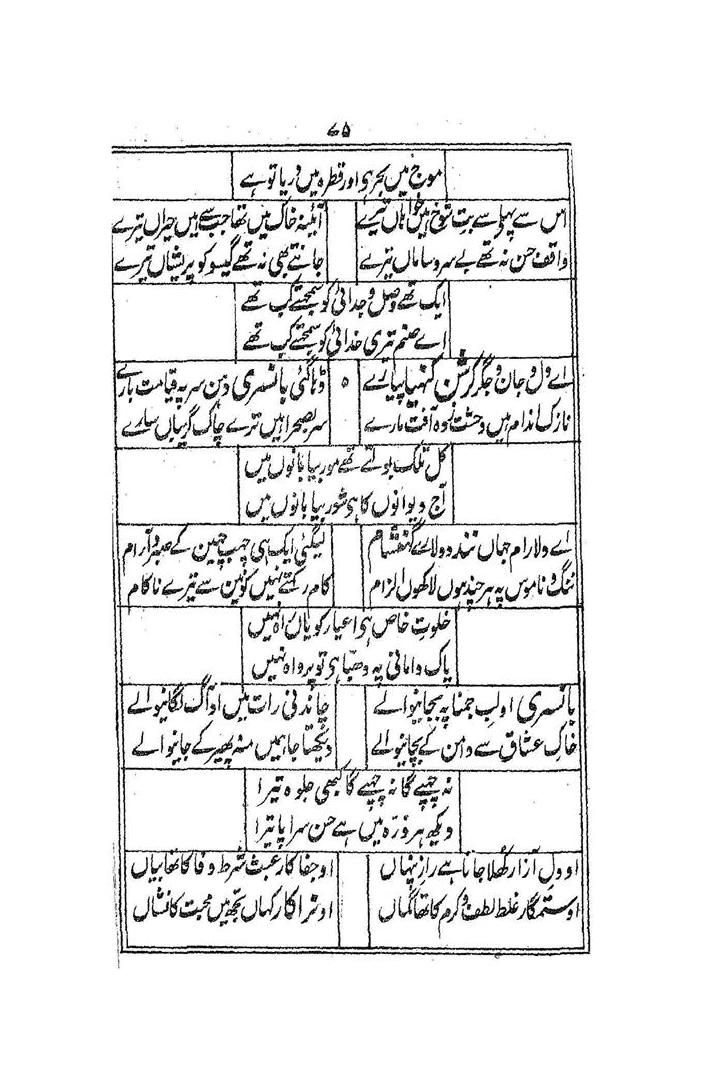 ۷۵
موج میں بحر ہی اور قطرہ میں دریا تو ہے
اس سے پہلے اے بت شوخ ہیں خواہاں تیرے آئینہ خاک میں تھا جب سے ہیں حیراں تیرے
واقف حسن نہ تھے بے سر و ساماں تیرے جانتے بھی نہ تھے گیسو کو پریشاں تیرے
ایک تھے وصل و جدائی کو سمجھتے کب تھے
اے صنم تری خدائی کو سمجھتے کب تھے
اے دل و جان و جگر کرشن کنھیا پیارے ۵ ڈھا گئی بانسری دہن سر پہ قیامت بارے
نازک اندام ہیں وحشت زدہ آفت مارے سر بصحرا ہیں ترے چاک گریباں سارے
کل تلک بولتے تھے مور بیابانوں میں
آج دیوانوں کا ہی شور بیابانوں میں
اے دلارام جہاں نند دولارے گھنشام لیگئی ایک ہی چھب چھین کے صبر و آرام
ننگ و ناموس پہ ہر چند ہوں لاکھوں الزام کام رکھتے نہیں کونین سے تیرے ناکام
خلوت خاص ہی اغیار کو یاں راہ نہیں
پاک دامانی پہ دھبا ہی تو پرواہ نہیں
بانسری او لب جمنا پہ بجانیوالے چاندنی رات میں او آگ لگانیوالے
خاک عشاق سے دامن کے بچانیوالے دیکھنا جا ہمیں منہ پھیر کے جانیوالے
نہ چھپے گا نہ چھپے گا کبھی جلوہ تیرا
دیکھ ہر ذرہ میں ہے حسن سراپا تیرا
او دل آزار کھلا جاتا ہے راز پنہاں او جفا کار عبث شرط وفا کا تھا بیاں
او ستمگار غلط لطف و کرم کا تھا گماں او کہاں تجھ میں محبت کا نشاں